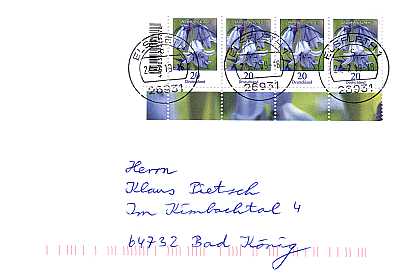 20 20 20 20
Deutschland Deutschland Deutschland Deutschland
ELSFLETH 1 ELSFLETH 1 ELSFLETH 1
26931 26931 26931
Herrn
Klaus Pietsch
Im Kimbachtal 4
64732 Bad König